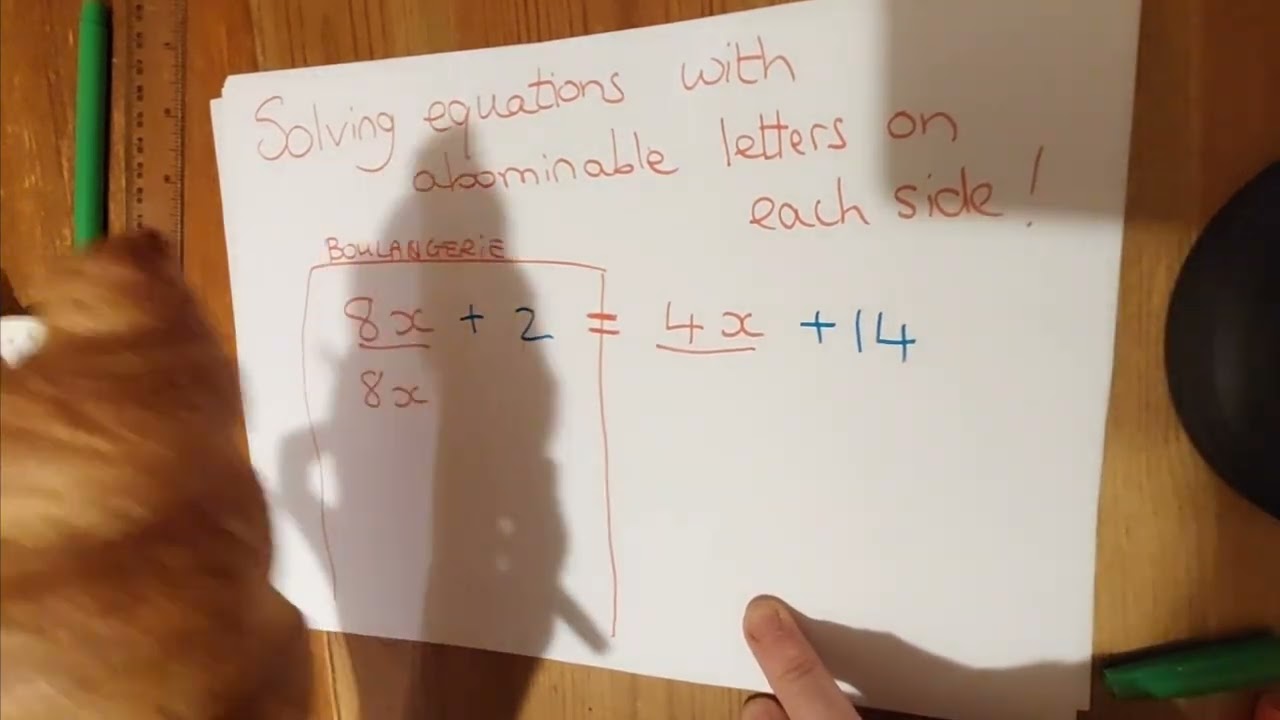 Solving equations with
abominable letters on
each side!
BOULANGERiE
8x + 2 = 4x + 14
8x